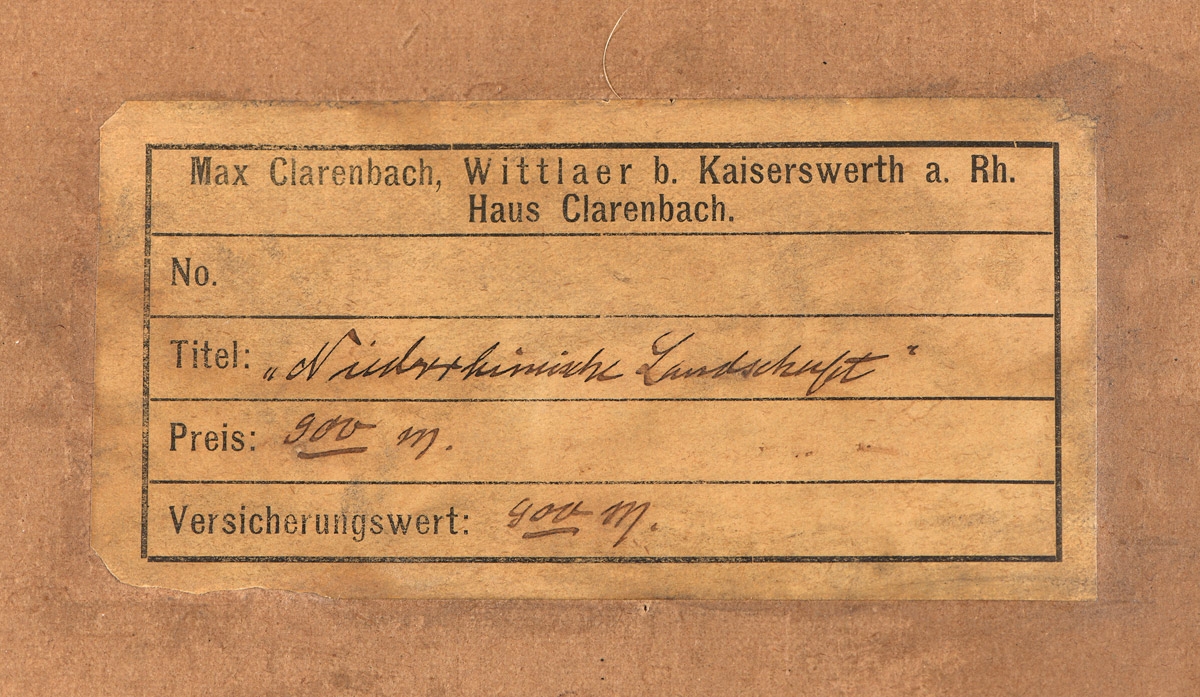 Max Clarenbach, Wittlaer b. Kaiserswerth a. Rh.
Haus Clarenbach.
No.
Titel: „Niederrheinische Landschaft“
Preis: 900 M.
Versicherungswert: 900 M.